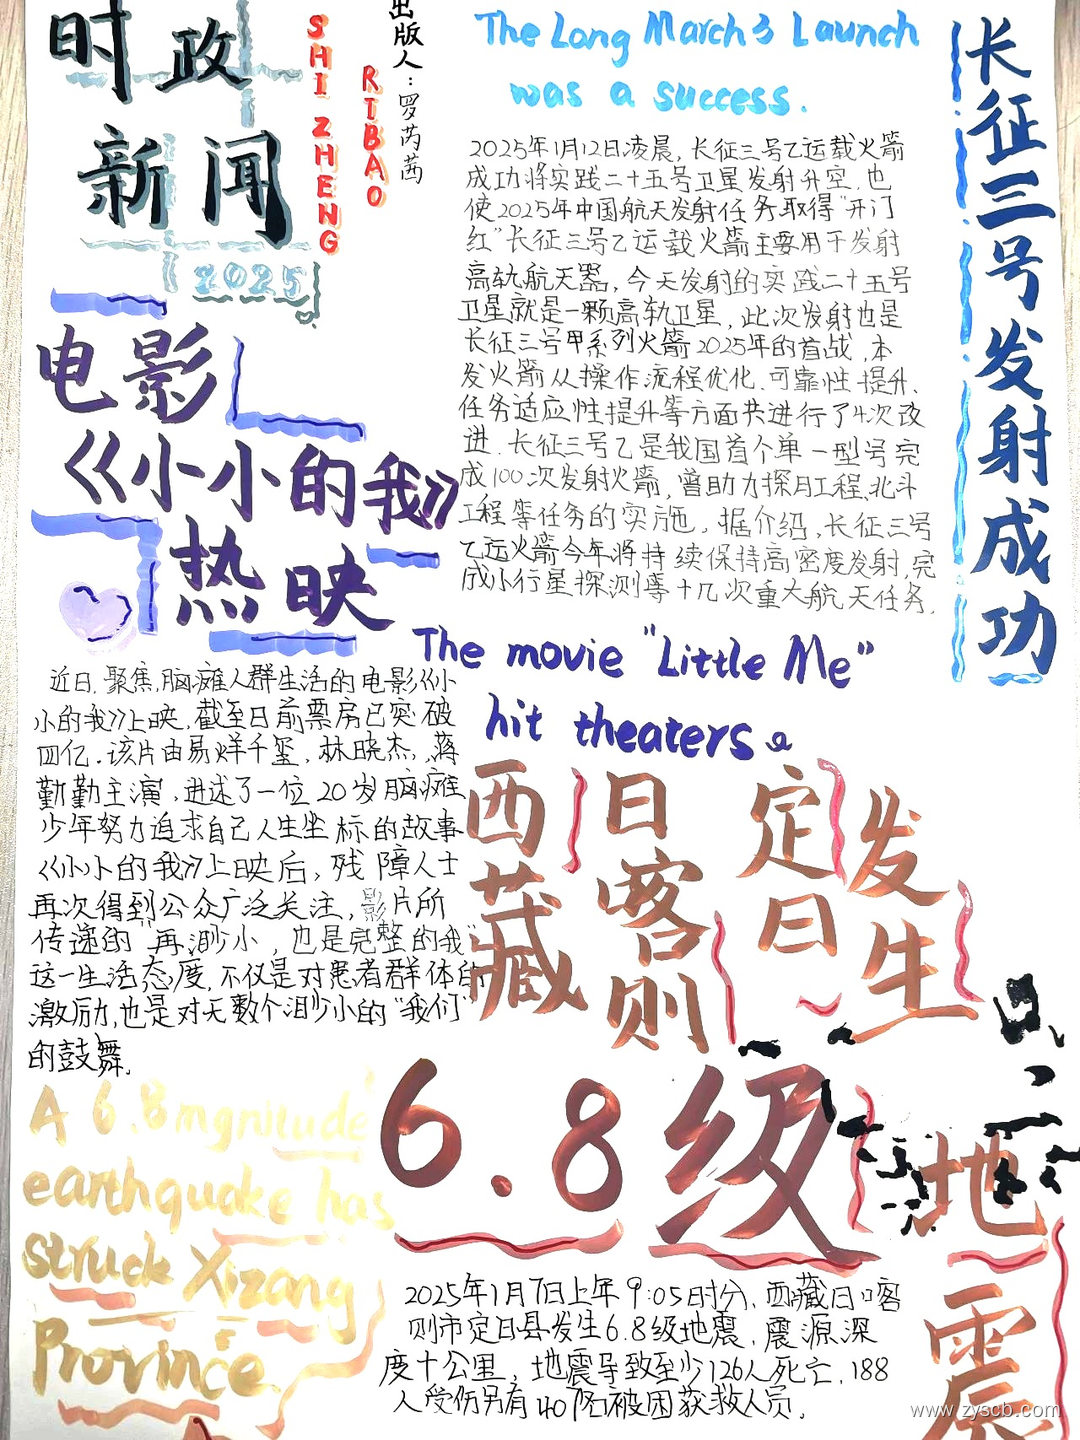 时政
新闻
2025
SHI ZHENG
RIBAO
出版人：罗芮茜
The Long March 3 Launch
was a success.
长征三号发射成功
2025年1月12日凌晨，长征三号乙运载火箭
成功将实践二十五号卫星发射升空，也
使2025年中国航天发射任务取得“开门
红”长征三号乙运载火箭主要用于发射
高轨航天器，今天发射的实践二十五号
卫星就是一颗高轨卫星，此次发射也是
长征三号甲系列火箭2025年的首战，本
发火箭从操作流程优化、可靠性提升、
任务适应性提升等方面共进行了4次改
进．长征三号乙是我国首个单一型号完
成100次发射火箭，曾助力探月工程、北斗
工程等任务的实施，据介绍，长征三号
乙运火箭今年将持续保持高密度发射，完
成小行星探测等十几次重大航天任务．
电影
《小小的我》
热映
The movie "Little Me"
hit theaters.
近日，聚焦脑瘫人群生活的电影《小
小的我》上映，截至日前票房已突破
四亿．该片由易烊千玺，林晓杰，蒋
勤勤主演，讲述了一位20岁脑瘫
少年努力追求自己人生坐标的故事
《小小的我》上映后，残障人士
再次得到公众广泛关注，影片所
传递的“再渺小，也是完整的我”
这一生活态度，不仅是对患者群体的
激励，也是对无数个渺小的“我们”
的鼓舞．
西藏日喀则定日发生
6.8级地震
A 6.8 mgnitude
earthquake has
struck Xizang
Province.
2025年1月7日上午9:05时分，西藏日喀
则市定日县发生6.8级地震，震源深
度十公里，地震导致至少126人死亡，188
人受伤另有407名被困获救人员．
www.zyscb.com